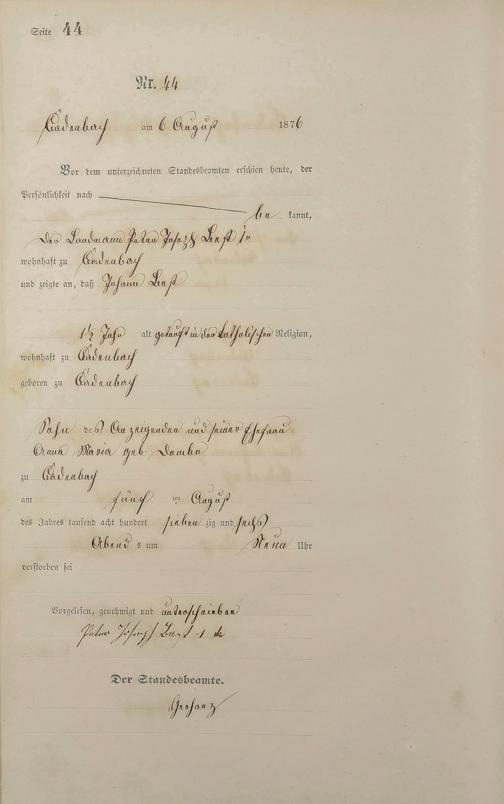 Seite 44
Nr. 44
Cadenbach am 6 August 1876
Vor dem unterzeichneten Standesbeamten erschien heute, der
Persönlichkeit nach
be kannt,
Der Landmann Peter Joseph
wohnhaft zu Cadenbach
und zeigte an, daß Johann
1½ Jahr alt getauft in der katholischen Religion,
wohnhaft zu Cadenbach
geboren zu Cadenbach
Sohn des Anzeigenden und seiner Ehefrau
Anna Maria geb.
zu Cadenbach
am fünf im August
des Jahres tausend acht hundert sieben zig und sechs
Abend s um Neun Uhr
verstorben sei
Vorgelesen, genehmigt und unterschrieben
Peter Joseph
Der Standesbeamte.
Gerharz